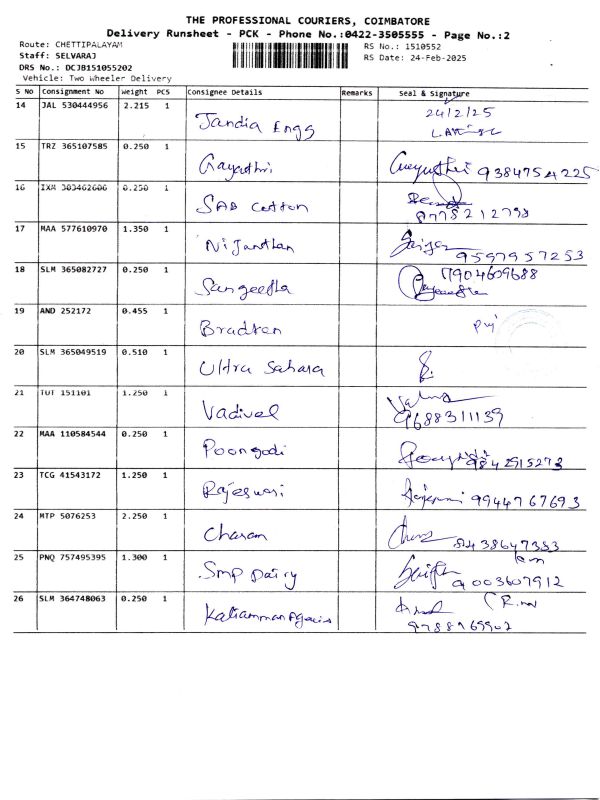 THE PROFESSIONAL COURIERS, COIMBATORE
Delivery Runsheet - PCK - Phone No.:0422-3505555 - Page No.:2
Route: CHETTIPALAYAM RS No.: 1510552
Staff: SELVARAJ RS Date: 24-Feb-2025
DRS No.: DCJB151055202
Vehicle: Two Wheeler Delivery
S No Consignment No Weight PCS Consignee Details Remarks Seal & Signature
14 JAL 530444956 2.215 1 Jandia Engg 24/2/25
15 TRZ 365107585 0.250 1 Gayathri Gayathri 9384754225
16 IXM 303462606 0.250 1 SAB Cotton 8778212798
17 MAA 577610970 1.350 1 Nijanthan 9597957253
18 SLM 365082727 0.250 1 Sangeetha 7904609688
19 AND 252172 0.455 1 Bradken
20 SLM 365049519 0.510 1 Ultra Sahara
21 TUT 151101 1.250 1 Vadivel 9688311139
22 MAA 110584544 0.250 1 Poongodi 9842915273
23 TCG 41543172 1.250 1 Rajeswari 9944767693
24 MTP 5076253 2.250 1 Charam
25 PNQ 757495395 1.300 1 Smp Dairy 9003607912
26 SLM 364748063 0.250 1 Kaliamman Agencis